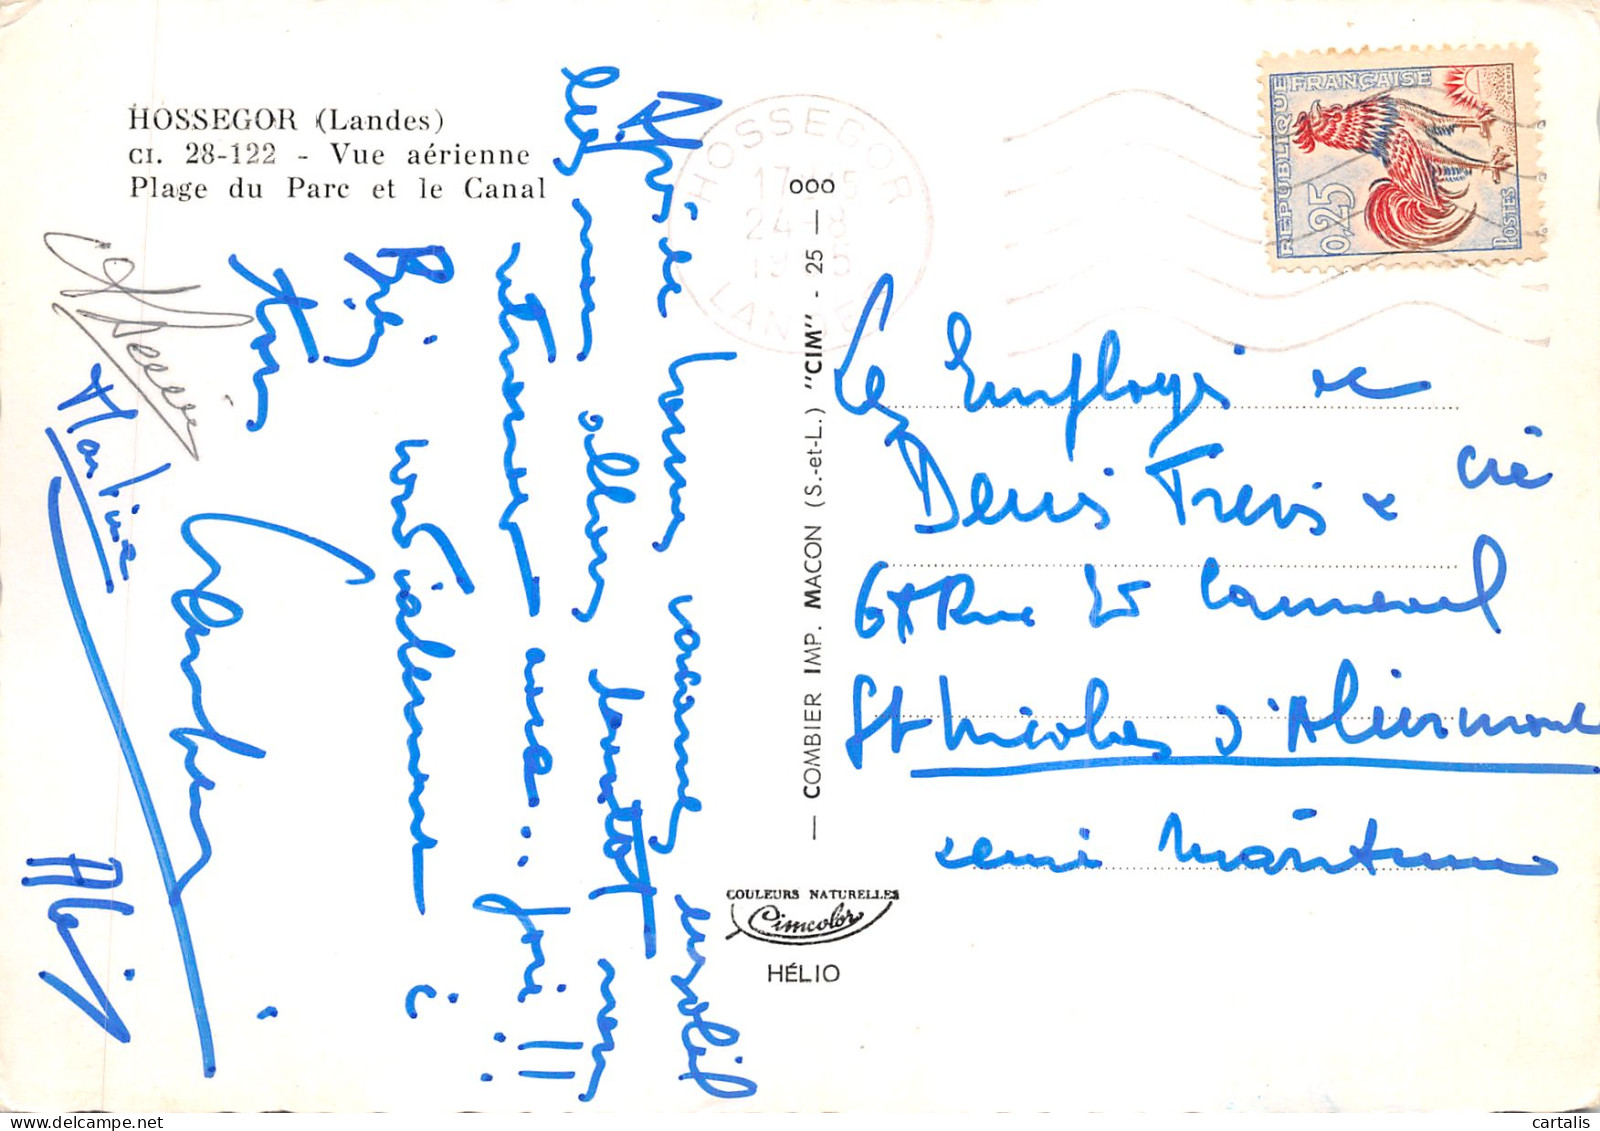 HOSSEGOR (Landes)
CI. 28-122 - Vue aérienne
Plage du Parc et le Canal
HOSSEGOR
24-8
LANDES
REPUBLIQUE FRANÇAISE
0,25
POSTES
COMBIER IMP. MACON (S.-et-L.) "CIM" - 25 — 000
COULEURS NATURELLES
Cimcolor
HÉLIO
Après de bonnes vacances ensoleil
lées nous allons bientôt nous
retrouver avec .. joie !!
Bien cordialement à
tous
Martine
Alain
Les Employés de
Denis Frères & Cie
67 Rue de
St Nicolas d'Aliermont
Seine Maritime
cartalis